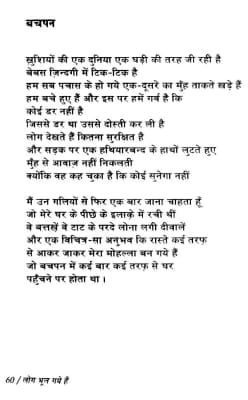 बचपन
ख़ुशियों की एक दुनिया एक घड़ी की तरह जी रही है
बेबस ज़िन्दगी में टिक-टिक है
हम सब पचास के हो गये एक-दूसरे का मुँह ताकते खड़े हैं
हम बचे हुए हैं और इस पर हमें गर्व है कि
कोई डर नहीं है
जिससे डर था उससे दोस्ती कर ली है
लोग देखते हैं कितना सुरक्षित है
और सड़क पर एक हथियारबन्द के हाथों लुटते हुए
मुँह से आवाज़ नहीं निकलती
क्योंकि वह कह चुका है कि कोई सुनेगा नहीं
मैं उन गलियों से फिर एक बार जाना चाहता हूँ
जो मेरे घर के पीछे के इलाक़े में रची थीं
वे बत्तखें वे टाट के परदे लोना लगी दीवालें
और एक विचित्र-सा अनुभव कि रास्ते कई तरफ़
से आकर जाकर मेरा मोहल्ला बन गये हैं
जो बचपन में कई बार कई तरफ़ से घर
पहुँचने पर होता था ।
60 / लोग भूल गये हैं